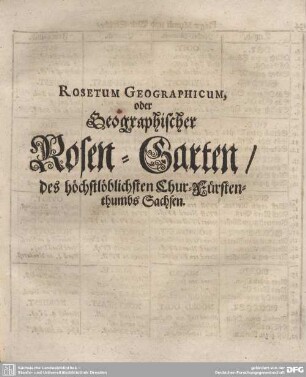 ROSETUM GEOGRAPHICUM,
oder
Geographischer
Rosen-Garten/
des höchstlöblichsten Chur-Fürsten-
thumbs Sachsen.
Sächsische Landesbibliothek -
Staats- und Universitätsbibliothek Dresden
gefördert von der
Deutschen Forschungsgemeinschaft
DFG